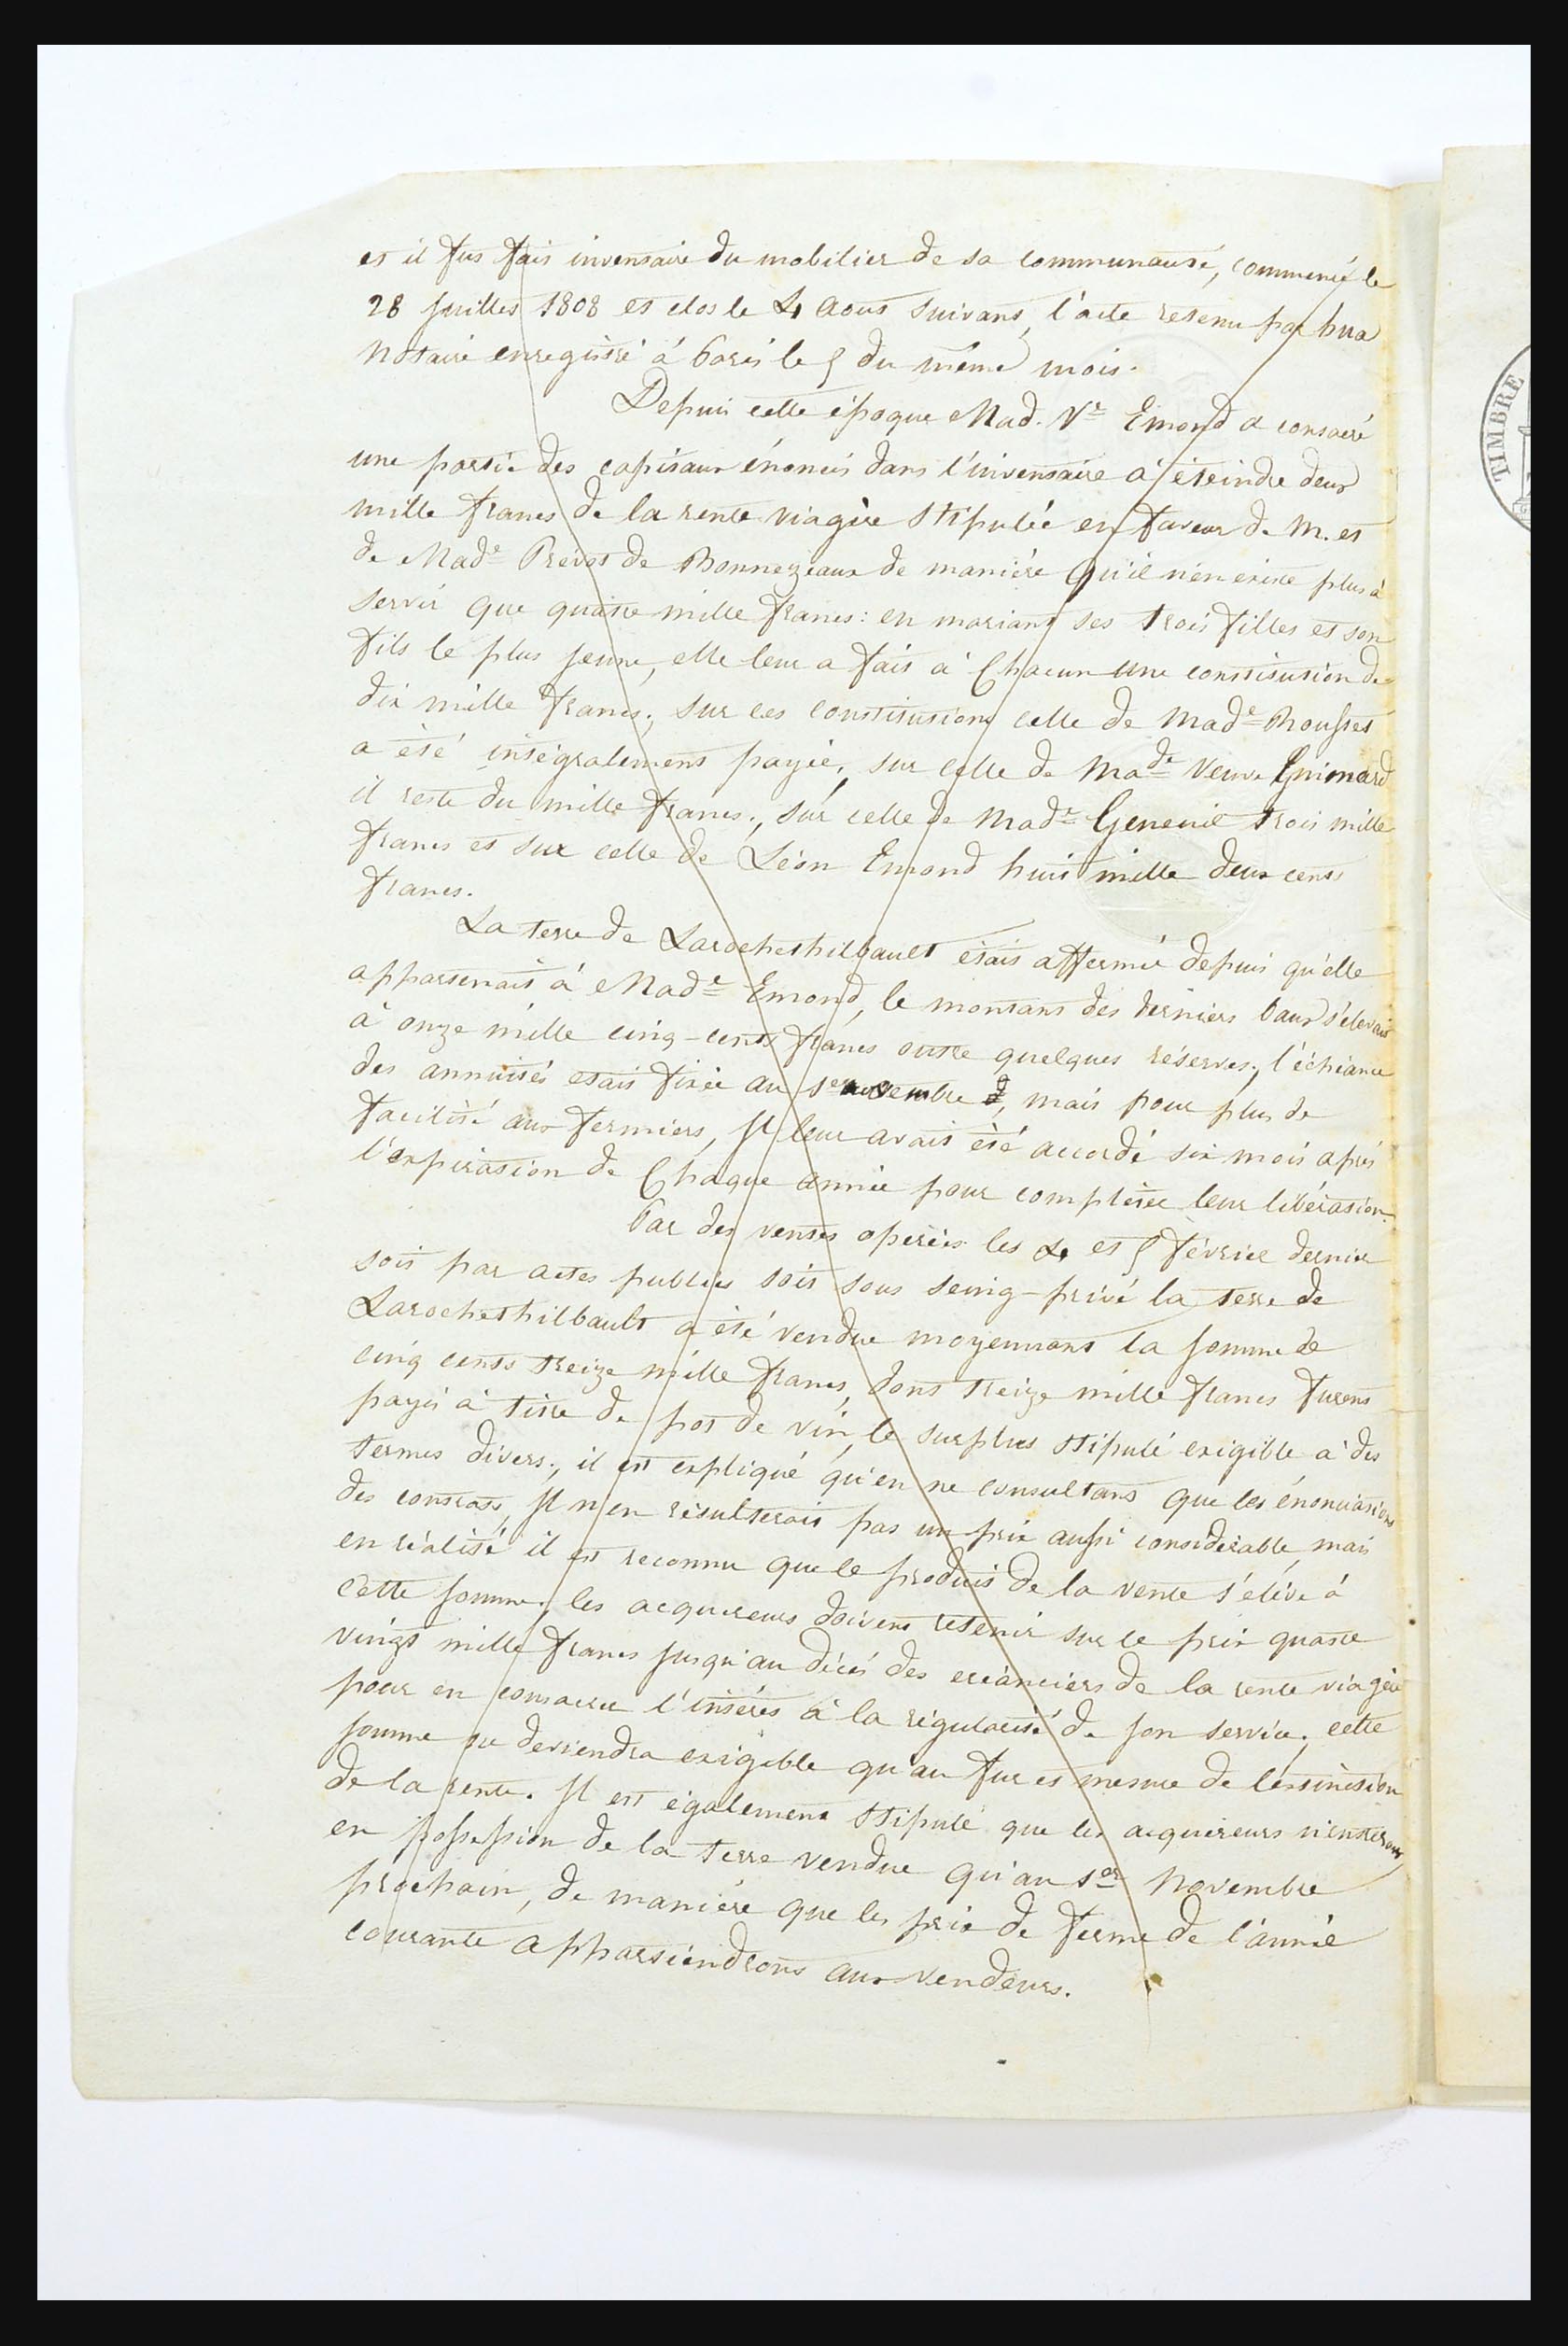 et il fut fait inventaire du mobilier de sa communauté, commencé le
28 Juillet 1808 et clos le 4 aout suivant, l'acte retenu par hua
Notaire enregistré à Paris le 5 du même mois.
Depuis cette époque Mad. Ve Emond a consacré
une partie des capitaux énoncés dans l'inventaire à éteindre deux
mille francs de la rente viagère stipulée en faveur de M. et
de Made Prevot de Bonnezeaux de manière qu'il n'en existe plus à
servir que quatre mille francs: en mariant ses trois filles et son
fils le plus jeune, elle leur a fait à Chacun une constitution de
dix mille francs; sur ces constitutions celle de Made Rousset
a été intégralement payée, sur celle de Made Veuve Guimard
il reste du mille francs., sur celle de Made Geneuil trois mille
francs et sur celle de Léon Emond huit mille deux cents
francs.
La terre de Larochethilbault était affermée depuis qu'elle
appartenait à Made Emond, le montant des derniers baux s'élevait
à onze mille cinq-cents francs outre quelques réserves, l'échéance
des annuités etait fixée au 1er novembre, mais pour plus de
facilité aux fermiers, Il leur avait été accordé six mois après
l'expiration de Chaque année pour compléter leur libération.
Par des ventes opérées les 4 et 5 février dernier
soit par actes publics soit sous seing-privé la terre de
Larochethilbault a été vendue moyennant la somme de
cinq cents treize mille francs, dont treize mille francs furent
payés à titre de pot de vin, le surplus stipulé exigible à des
termes divers., il est expliqué qu'en ne consultant que les énonciations
des contrats, Il n'en résulterait pas un prix aussi considérable, mais
en réalité il est reconnu que le produit de la vente s'élève à
cette somme; les acquereurs doivent retenir sur le prix quatre
vingt mille francs jusqu'au décès des créanciers de la rente viagère
pour en consacrer l'intérêt à la régularité de son service; cette
somme ne deviendra exigible qu'au fur et mesure de l'extinction
de la rente. Il est également stipulé que les acquéreurs n'entreront
en possession de la terre vendue qu'au 1er Novembre
prochain, de manière que les prix de ferme de l'année
courante appartiendront aux vendeurs.
TIMBRE